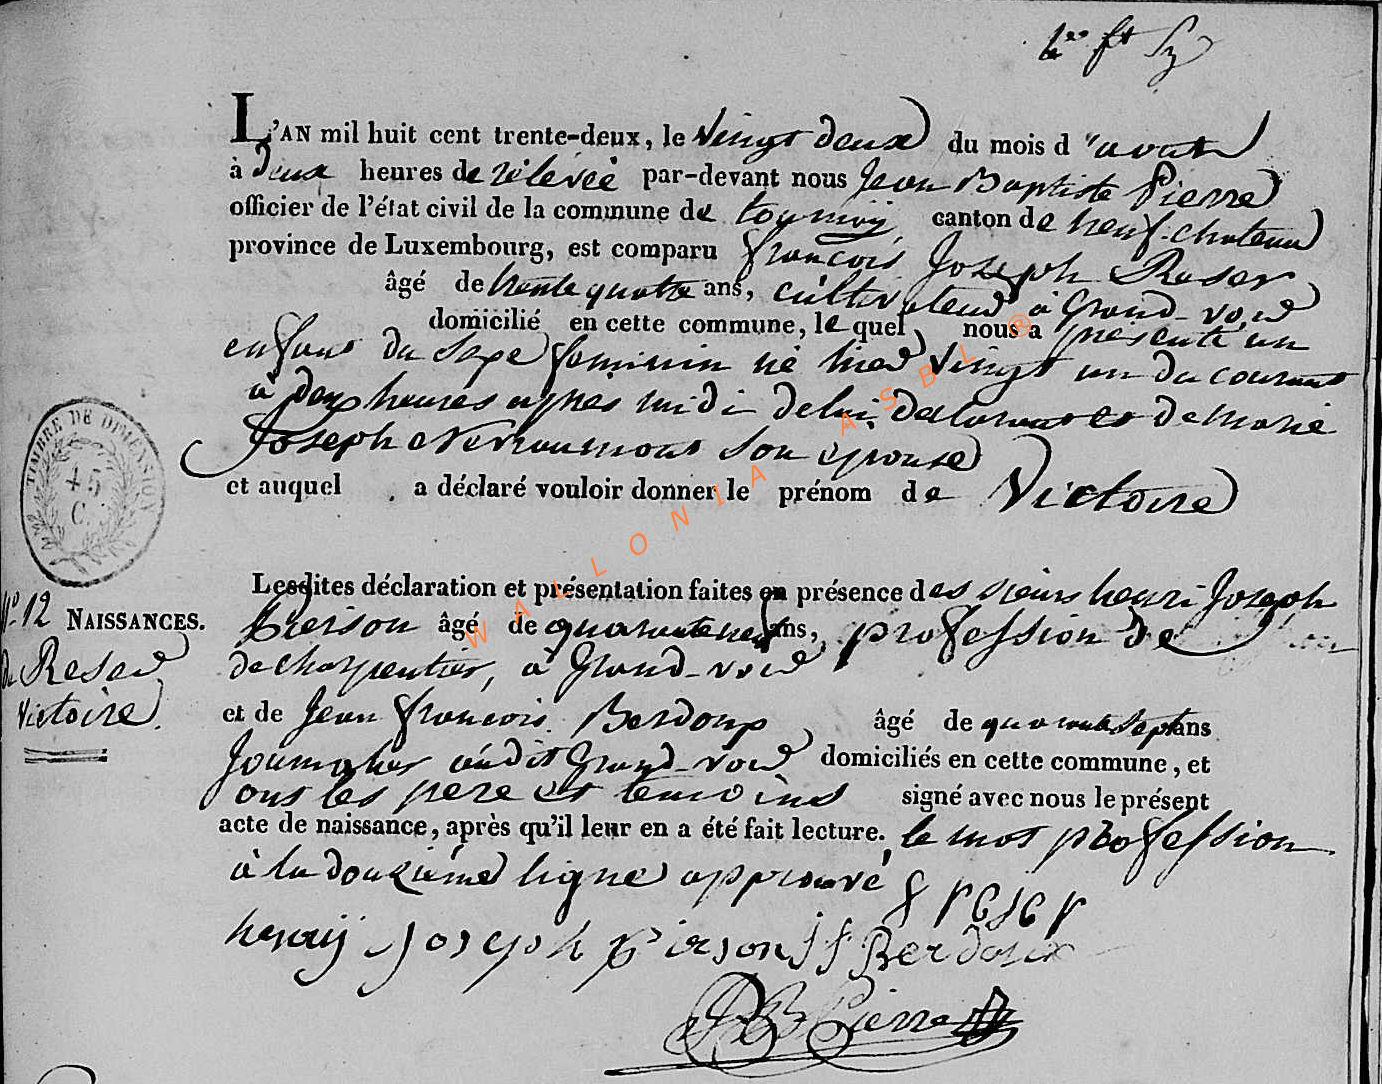 L'AN mil huit cent trente-deux, le vingt deux du mois d'avout
à deux heures de rélévée par-devant nous Jean Baptiste Pierre
officier de l'état civil de la commune de tournÿ canton de neuf-chateau
province de Luxembourg, est comparu françois Joseph Reser
âgé de trente quatre ans, cultivateur à Grand-voir
domicilié en cette commune, le quel nous a présenté un
enfant du sexe feminin né hier vingt un du courant
à deux heures après midi de lui declarant et de Marie
Joseph Verraumont son epouse
et auquel a déclaré vouloir donner le prénom de Victoire
TIMBRE DE DIMENSION
45
C.
Lesdites déclaration et présentation faites en présence des sieurs henri Joseph
N° 12 NAISSANCES.
Pierson âgé de quaranteneuf ans, profession de
de Reser
de charpentier, à Grand-voir
Victoire.
et de Jean françois Berdoux âgé de quarantesept ans
Journalier audit Grand-voir domiciliés en cette commune, et
ont les pere et temoins signé avec nous le présent
acte de naissance, après qu'il leur en a été fait lecture. le mot profession
à la douzième ligne approuvé
f reser
henrÿ Joseph pierson j f Berdoux
JB Pierre
WALLONIA ASBL ®